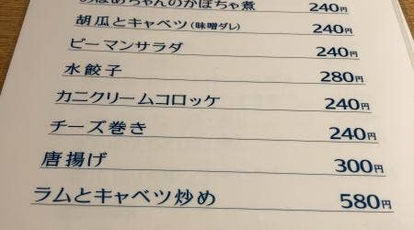 のかぼちゃ煮 240円
胡瓜とキャベツ(味噌ダレ) 240円
ピーマンサラダ 240円
水餃子 280円
カニクリームコロッケ 240円
チーズ巻き 240円
唐揚げ 300円
ラムとキャベツ炒め 580円